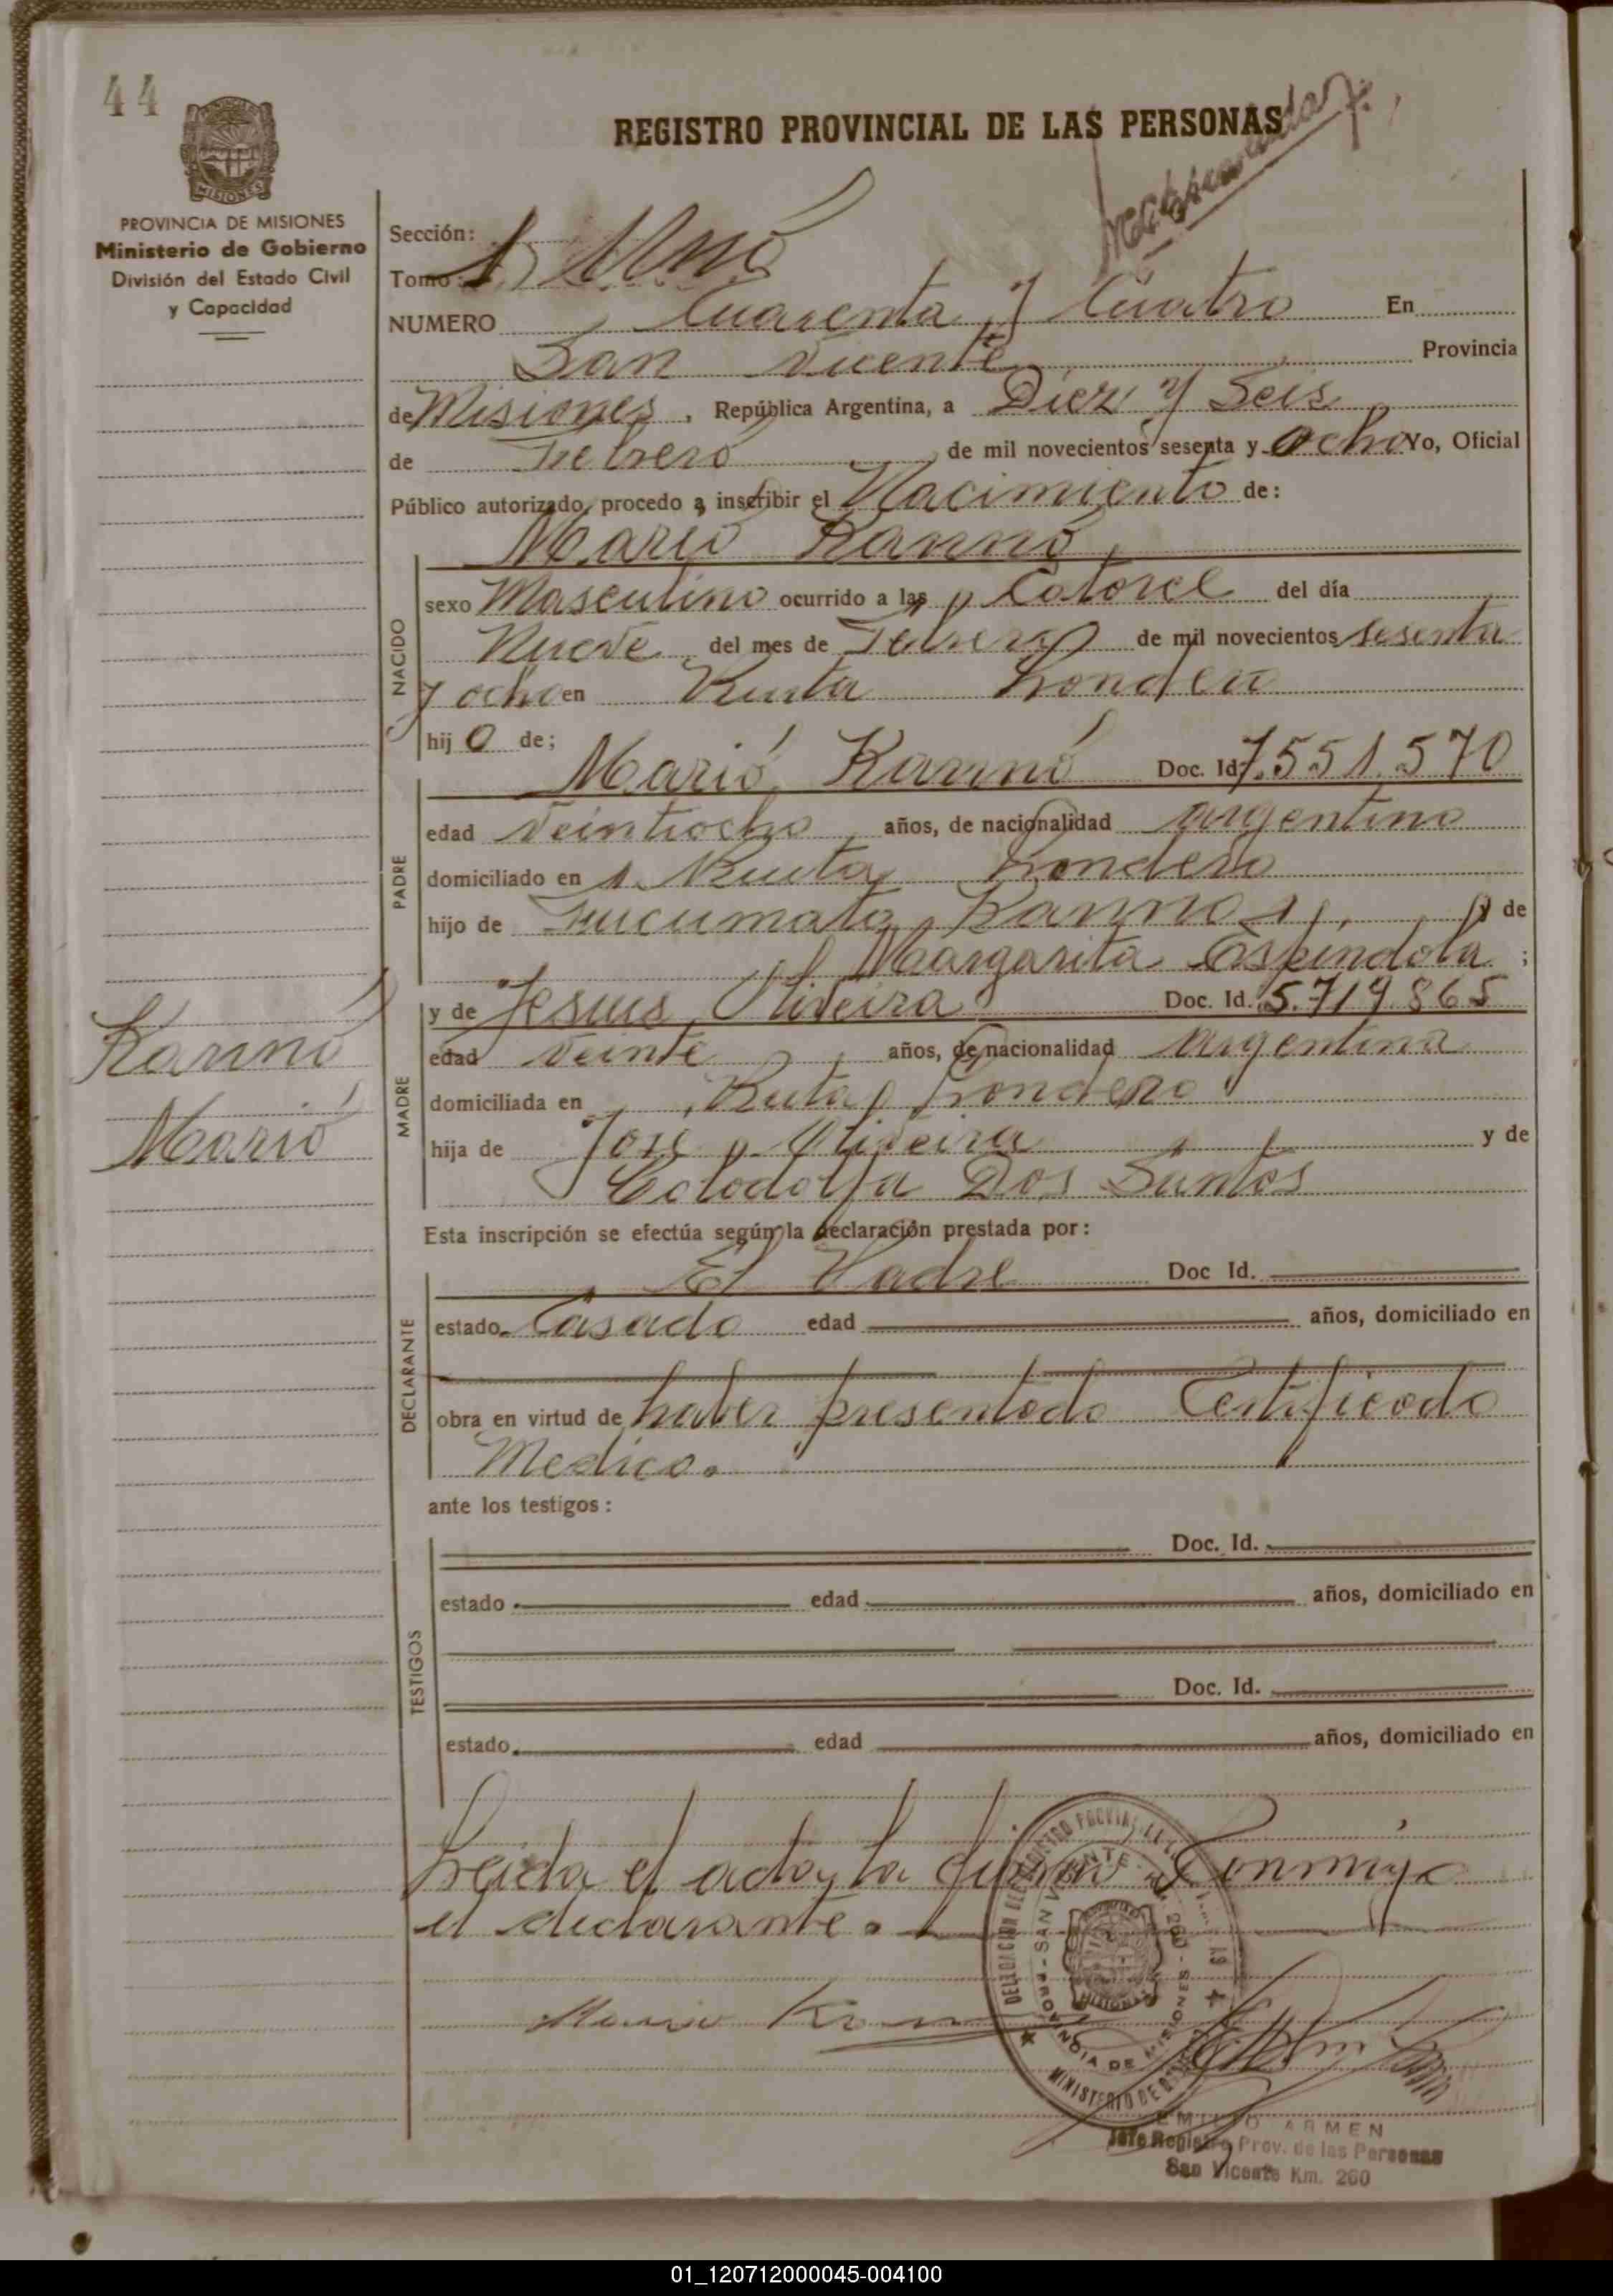 44
REGISTRO PROVINCIAL DE LAS PERSONAS
PROVINCIA DE MISIONES
Ministerio de Gobierno
División del Estado Civil
y Capacidad
Sección:
Tomo: 1 Uno
NUMERO Cuarenta y Cuatro En
San Vicente Provincia
de Misiones, República Argentina, a Diez y Seis
de Febrero de mil novecientos sesenta y ocho Yo, Oficial
Público autorizado, procedo a inscribir el Nacimiento de:
Mario Ranno
NACIDO
sexo Masculino ocurrido a las Catorce del día
Nueve del mes de Febrero de mil novecientos sesenta
y ocho en Ruta Londero
hij o de;
PADRE
Mario Ranno Doc. Id. 7.551.570
edad Veintiocho años, de nacionalidad argentino
domiciliado en Ruta Londero
hijo de Ranno y de
Margarita Espindola ;
MADRE
y de Jesus Oliveira Doc. Id. 5.719.865
edad Veinte años, de nacionalidad argentina
domiciliada en Ruta Londero
hija de Jose Oliveira y de
Dos Santos
Ranno
Mario
Esta inscripción se efectúa según la declaración prestada por:
DECLARANTE
El Padre Doc Id.
estado Casado edad años, domiciliado en
obra en virtud de haber presentado Certificado
Medico.
ante los testigos:
TESTIGOS
Doc. Id.
estado edad años, domiciliado en
Doc. Id.
estado edad años, domiciliado en
Leida el acta, la firma Conmigo
el declarante.
SAN VICENTE
PROVINCIA DE MISIONES
EMILIO ARMEN
Jefe Registro Prov. de las Personas
San Vicente Km. 260
01_120712000045-004100